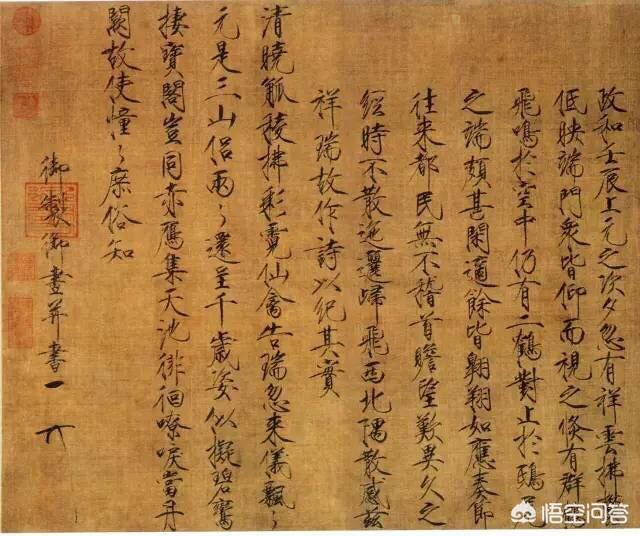 政和壬辰上元之次夕忽有祥雲拂鬱
低映端門衆皆仰而視之倏有群鶴
飛鳴於空中仍有二鶴對止於鴟尾
之端頗甚閑適餘皆翱翔如應奏節
往來都民無不稽首瞻望歎異久之
經時不散迤邐歸飛西北隅散感茲
祥瑞故作詩以紀其實
清曉觚稜拂彩霓仙禽告瑞忽來儀飄〻
元是三山侶兩〻還呈千歲姿似擬碧鸞
棲寶閣豈同赤鴈集天池徘徊嘹唳當丹
闕故使憧〻庶俗知
御製御畫并書
悟空问答